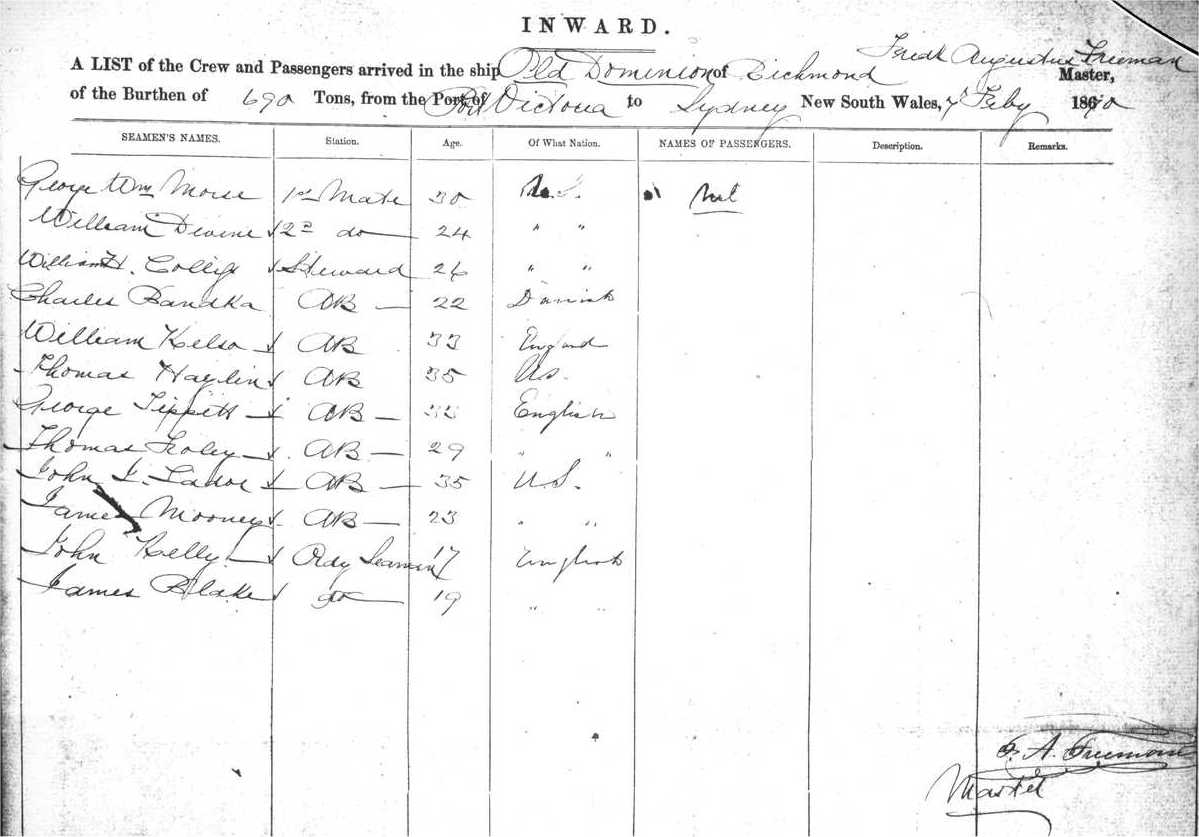 INWARD.
Fredk Augustus Freeman
A LIST of the Crew and Passengers arrived in the ship Old Dominion of Richmond Master,
of the Burthen of 690 Tons, from the Port of Port Victoria to Sydney New South Wales, 7 Feby 1870
SEAMEN'S NAMES. Station. Age. Of What Nation. NAMES OF PASSENGERS. Description. Remarks.
George Wm Morse 1st Mate 30 U.S. nil
William Devine 2nd do 24 " "
William H. Steward 26 " "
Charles Bandka AB 22 Danish
William Kelso AB 33 England
Thomas AB 35 US.
George Tippett AB English
Thomas Foley AB 29 " "
John AB 35 U.S.
James Mooney AB 23 " "
John Kelly Ordy Seaman 17 English
James Blake do 19 " "
F. A. Freeman
Master